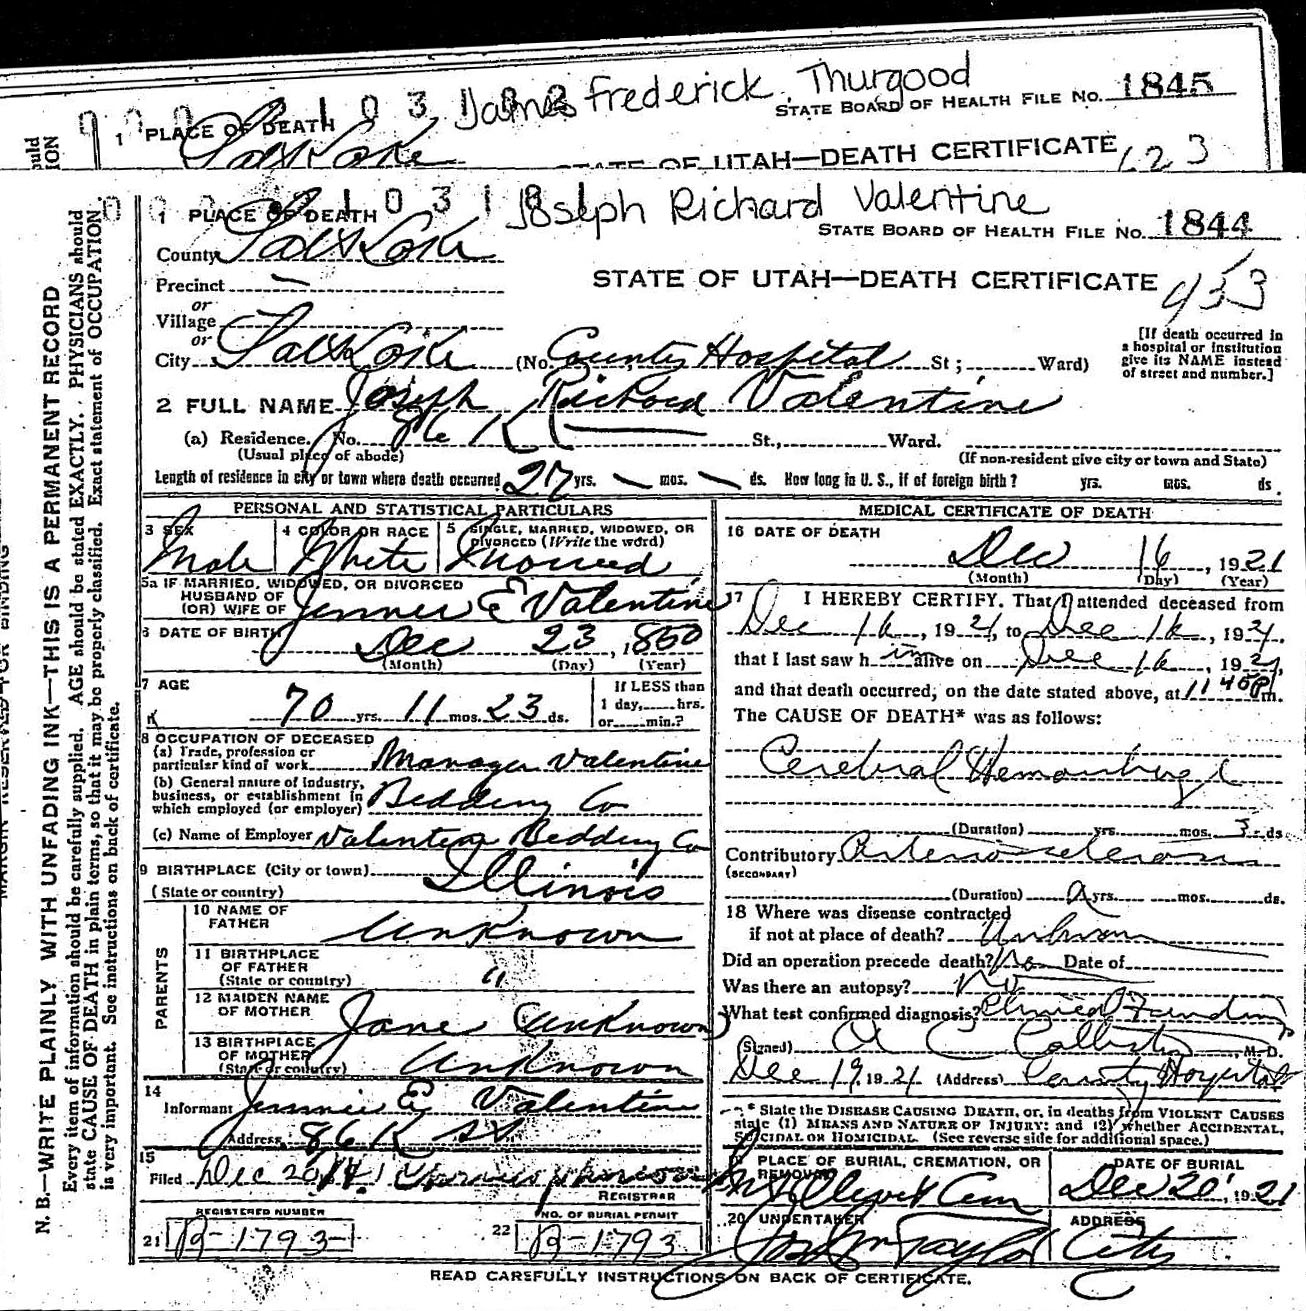 James Frederick Thurgood
0 0 0 1 0 3 1 8 2
STATE BOARD OF HEALTH FILE No. 1845
1 PLACE OF DEATH
Salt Lake
STATE OF UTAH—DEATH CERTIFICATE
123
Joseph Richard Valentine
1 0 3 1 8 1
1 PLACE OF DEATH
STATE BOARD OF HEALTH FILE No. 1844
County Salt Lake
STATE OF UTAH—DEATH CERTIFICATE
453
Precinct —
or
Village
or
City Salt Lake (No. County Hospital St; Ward)
[If death occurred in a hospital or institution give its NAME instead of street and number.]
2 FULL NAME Joseph Richard Valentine
(a) Residence. No. 86 K St., Ward.
(Usual place of abode) (If non-resident give city or town and State)
Length of residence in city or town where death occurred 27 yrs. — mos. — ds. How long in U. S., if of foreign birth? yrs. mos. ds.
PERSONAL AND STATISTICAL PARTICULARS
3 SEX Male
4 COLOR OR RACE White
5 SINGLE, MARRIED, WIDOWED, OR DIVORCED (Write the word) Married
5a IF MARRIED, WIDOWED, OR DIVORCED
HUSBAND OF
(OR) WIFE OF Jennie E Valentine
6 DATE OF BIRTH Dec 23, 1850
(Month) (Day) (Year)
7 AGE
70 yrs. 11 mos. 23 ds.
If LESS than
1 day, hrs.
or min.?
8 OCCUPATION OF DECEASED
(a) Trade, profession or
particular kind of work Manager Valentine
(b) General nature of industry,
business, or establishment in
which employed (or employer) Bedding Co
(c) Name of Employer Valentine Bedding Co
9 BIRTHPLACE (City or town)
(State or country) Illinois
PARENTS
10 NAME OF
FATHER Unknown
11 BIRTHPLACE
OF FATHER
(State or country) "
12 MAIDEN NAME
OF MOTHER Jane Unknown
13 BIRTHPLACE
OF MOTHER
(State or country) Unknown
14
Informant Jennie E Valentine
Address 86 K St
15
Filed Dec 20
REGISTRAR
REGISTERED NUMBER
21 B-1793
NO. OF BURIAL PERMIT
22 B-1793
MEDICAL CERTIFICATE OF DEATH
16 DATE OF DEATH
Dec 16, 1921
(Month) (Day) (Year)
17 I HEREBY CERTIFY, That I attended deceased from
Dec 16, 1921, to Dec 16, 1921.
that I last saw h im alive on Dec 16, 1921,
and that death occurred, on the date stated above, at 11 45 P m.
The CAUSE OF DEATH* was as follows:
Cerebral Hemorrhage
(Duration) yrs. mos. 3 ds.
Contributory Arteriosclerosis
(SECONDARY)
(Duration) yrs. mos. ds.
18 Where was disease contracted
if not at place of death? Unknown
Did an operation precede death? No Date of
Was there an autopsy? No
What test confirmed diagnosis? Clinical Findings
(Signed) A C Callister, M. D.
Dec 19, 1921 (Address) County Hospital
* State the DISEASE CAUSING DEATH, or, in deaths from VIOLENT CAUSES
state (1) MEANS AND NATURE OF INJURY: and (2) whether ACCIDENTAL,
SUICIDAL OR HOMICIDAL. (See reverse side for additional space.)
19 PLACE OF BURIAL, CREMATION, OR
REMOVAL
Mt Olivet Cem
DATE OF BURIAL
Dec 20, 1921
20 UNDERTAKER
Jos Wm Taylor
ADDRESS
City
READ CAREFULLY INSTRUCTIONS ON BACK OF CERTIFICATE.
MARGIN RESERVED FOR BINDING
N. B.—WRITE PLAINLY WITH UNFADING INK—THIS IS A PERMANENT RECORD
Every item of information should be carefully supplied. AGE should be stated EXACTLY. PHYSICIANS should
state CAUSE OF DEATH in plain terms, so that it may be properly classified. Exact statement of OCCUPATION
is very important. See instructions on back of certificate.